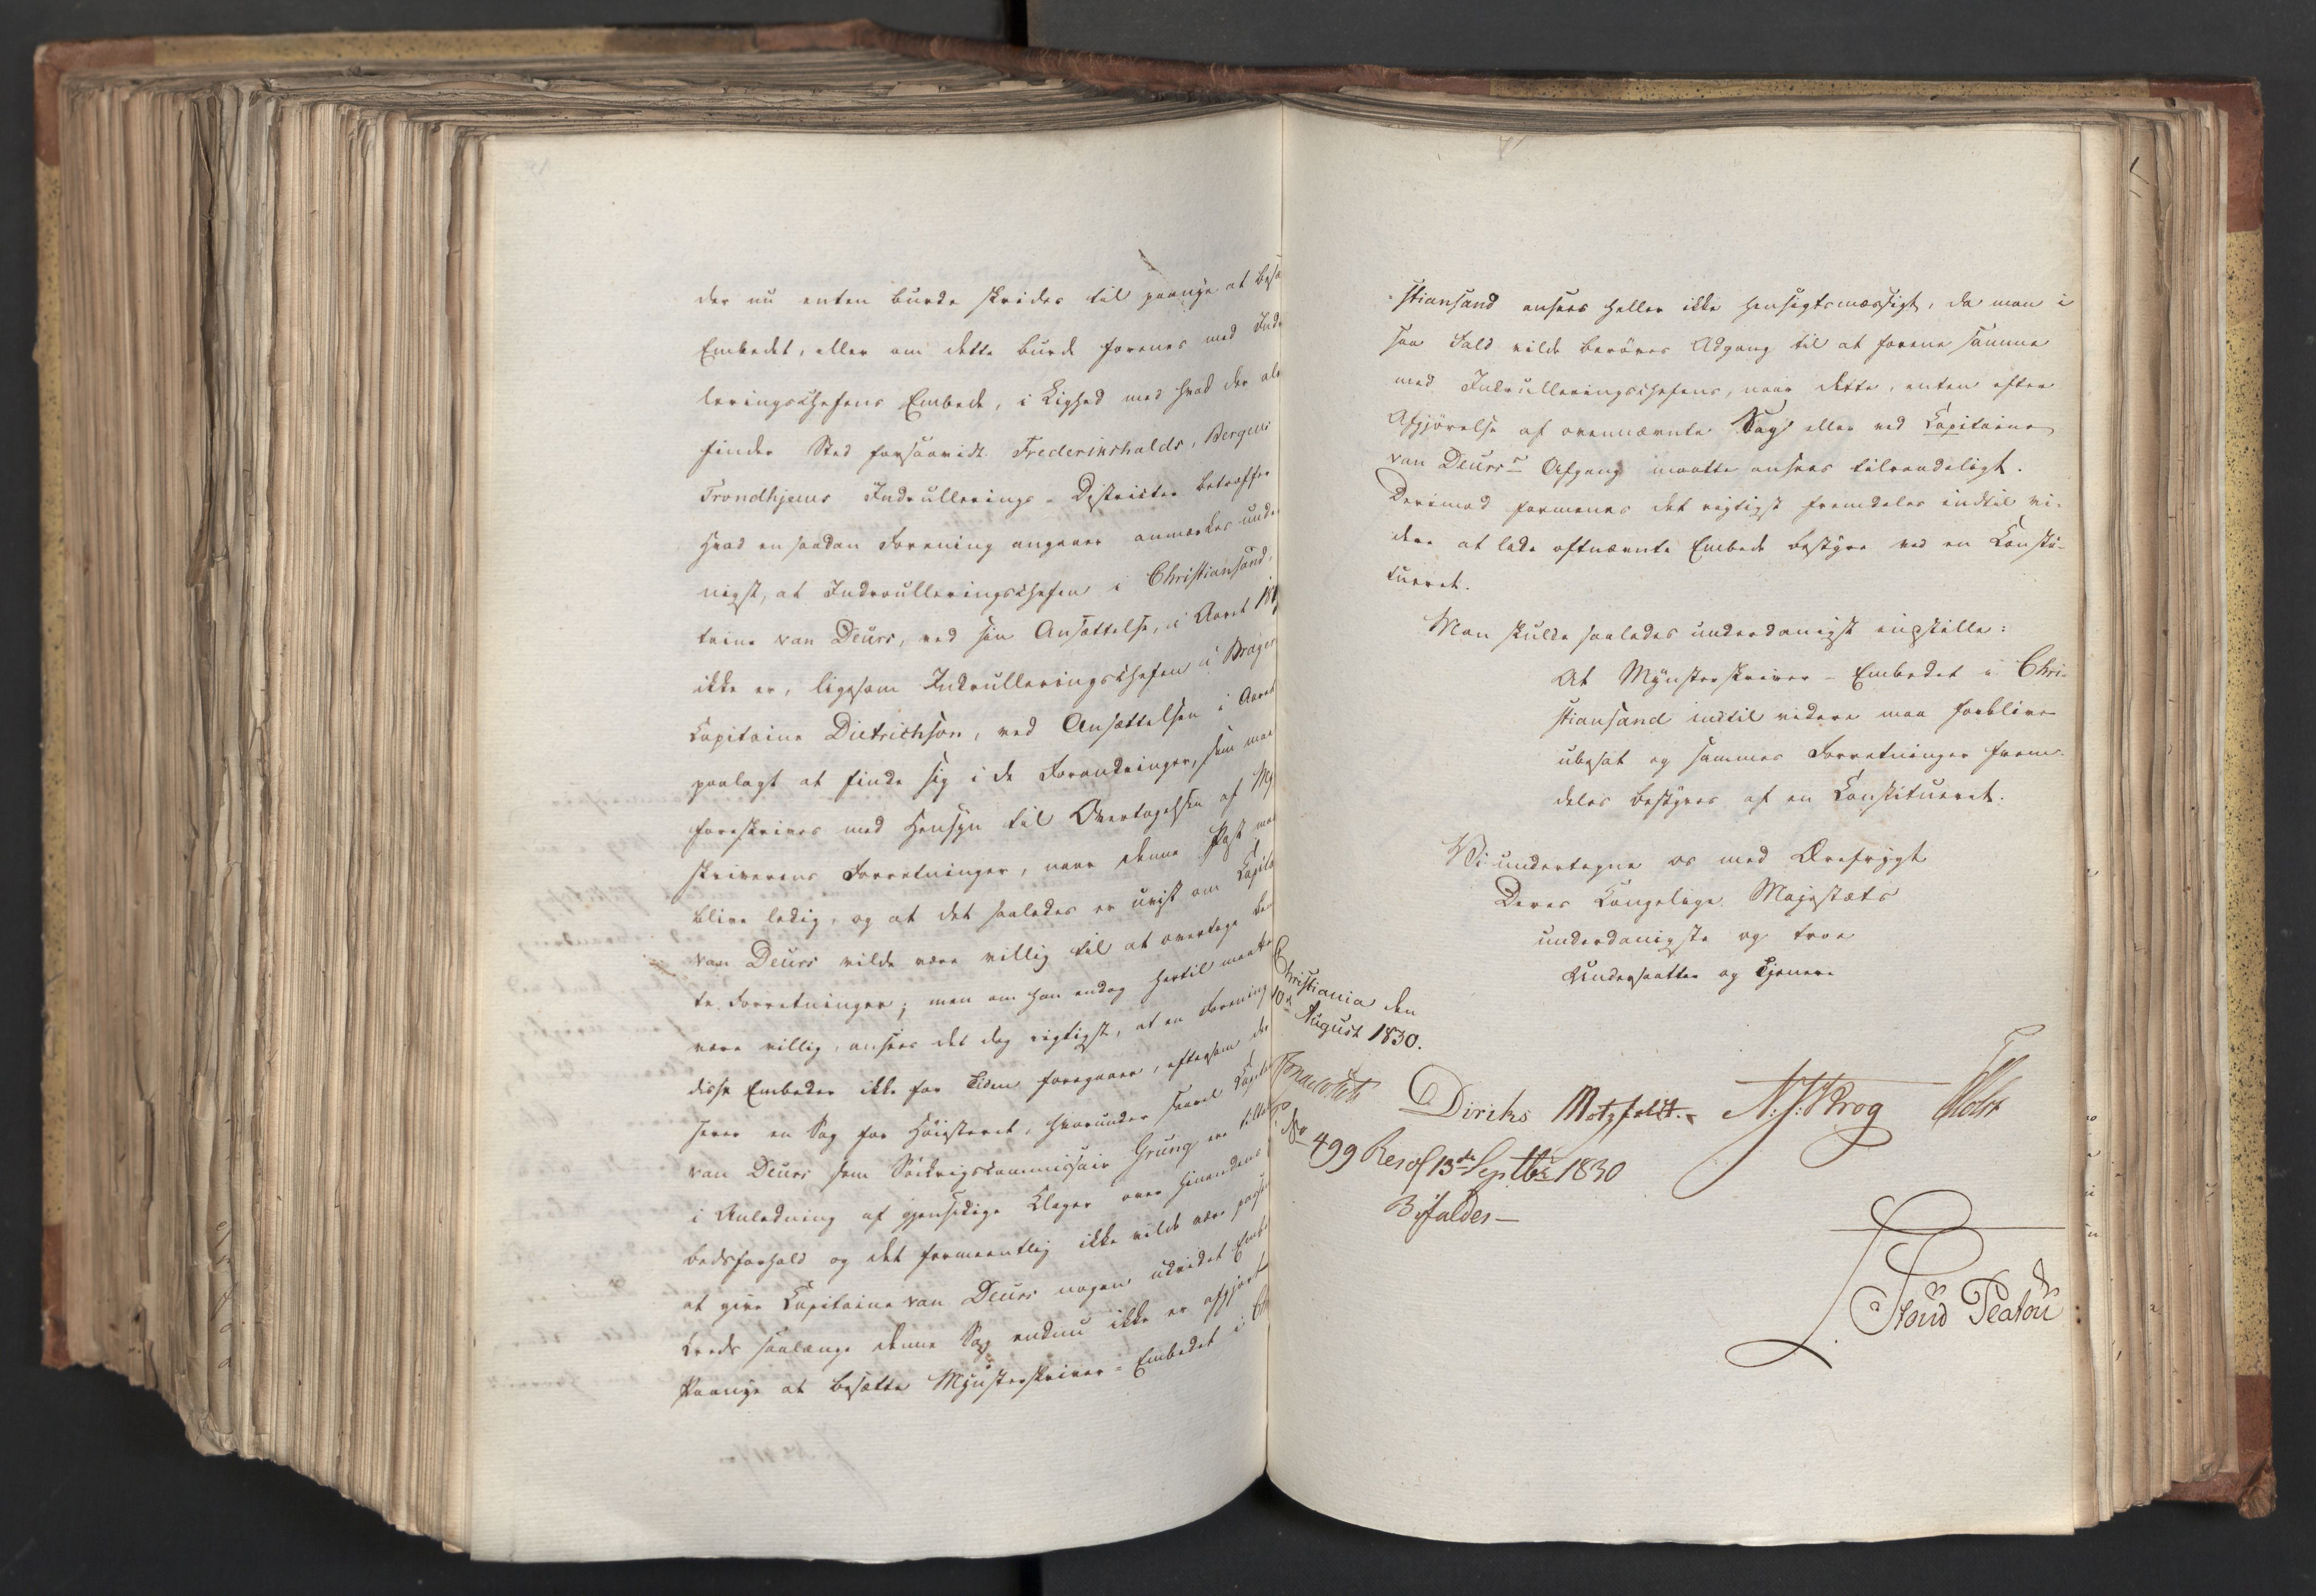 der nu enten burde skrides til paanye at besæ
Embedet, eller om dette burde forenes med Indr
leringschefens Embede, i Lighed med hvad der ale
finder Sted forsaavidt Frederikshalds, Bergens
Trondhjems Indrullerings-Districter betræffer
Hvad en saadan Forening angaaer anmærkes unde
nigst, at Indroulleringschefen i Christiansand,
taine van Deurs, ved sin Ansættelse, i Aaret 181
ikke er, ligesom Indroulleringschefen i Brager
Capitaine Dietrichson, ved Ansættelsen i Aaret
paalagt at finde sig i de Forandringer, som maa
foreskrives med Hensyn til Overtagelsen af My
skriverens Forretninger, naar denne Post maa
blive ledig, og at det saaledes er uvist om Capita
van Deurs vilde være villig til at overtage be
te Forretninger; men om han endog hertil maatte
være villig, ansees det dog rigtigst, at en Forening
disse Embeder ikke for Tiden foregaaer, eftersom de
svær en Sag for Höiesteret, hvorunder saavel Capita
van Deurs som Söekrigscommissair Grung ere tilta
i Anledning af gjensidige Klager over hinandens
bedsforhold og det formeentlig ikke vilde være passe
at give Capitaine van Deurs nogen udvidet Emb
Kreds saalænge denne Sag endnu ikke er afgjort
Paanye at besætte Mynsterskriver-Embedet i Ch
=stiansand ansees heller ikke hensigtsmæssigt, da man i
saa Fald vilde beröves Adgang til at forene samme
med Indroulleringschefens, naar dette, enten efter
Afgjörelse af ovennævnte Sag eller ved Capitaine
van Deurs's Afgang maatte ansees tilraadeligt.
Derimod formenes det rigtigst fremdeles indtil vi-
dere at lade oftnævnte Embede bestyre ved en Consti-
tueret.
Man skulde saaledes underdanigst indstille:
At Mynsterskriver-Embedet i Chri-
stiansand indtil videre maa forblive
ubesat og sammes Forretninger frem-
deles bestyres af en Constitueret.
Vi undertegne os med Ærefrygt
Deres Kongelige Majestæts
underdanigste og troe
Undersaatter og Tjenere
Christiania den
10de August 1830.
Diriks Motzfeldt. N: J: Krog Holst
No 499 Resol 13de Septbr 1830
Bifaldes—